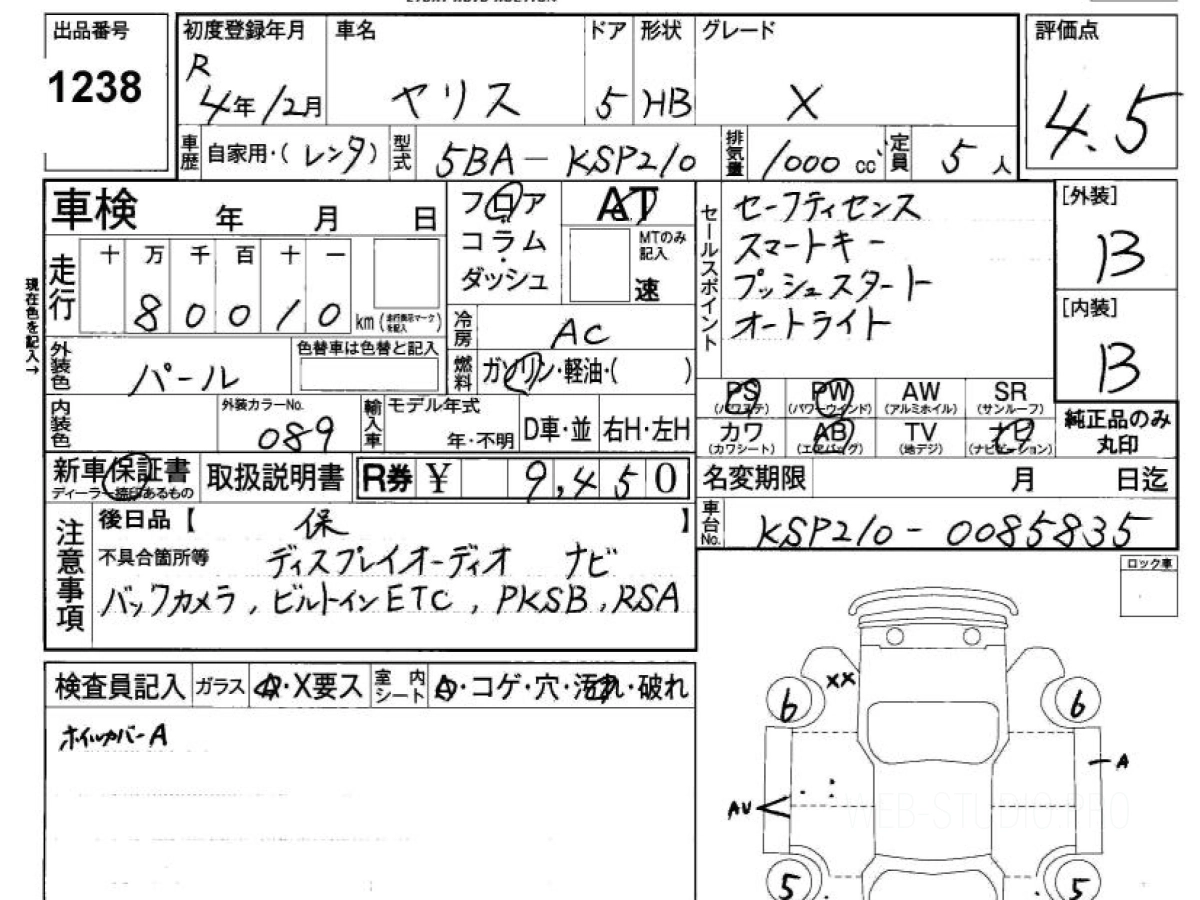 出品番号 初度登録年月 車名 ドア 形状 グレード 評価点
1238 R 4年12月 ヤリス 5 HB X 4.5
車歴 自家用・(レンタ) 型式 5BA-KSP210 排気量 1000cc 定員 5人
車検 年 月 日
フロア コラム・ダッシュ
AT
MTのみ記入
速
セールスポイント
セーフティセンス
スマートキー
プッシュスタート
オートライト
[外装]
B
[内装]
B
現在色を記入→
走行 十 万 千 百 十 一
8 0 0 1 0 km (走行表示マークを記入)
冷房 AC
燃料 ガソリン・軽油・( )
外装色 パール 色替車は色替と記入
内装色 外装カラーNo. 089 輸入車 モデル年式 年・不明 D車・並 右H・左H
PS (パワステ) PW (パワーウインド) AW (アルミホイル) SR (サンルーフ)
カワ (カワシート) AB (エアバッグ) TV (地デジ) ナビ (ナビゲーション)
純正品のみ丸印
新車保証書 ディーラー捺印あるもの 取扱説明書 R券 ¥ 9,450
名変期限 月 日迄
車台No. KSP210-0085835
注意事項
後日品【 保 】
不具合箇所等 ディスプレイオーディオ ナビ
バックカメラ, ビルトインETC, PKSB, RSA
ロック車
検査員記入 ガラス A・X要ス 室内シート A・コゲ・穴・汚れ・破れ
ホイルカバーA
XX
6 6
A
AU
WEB-STUDIO.PRO
5 5